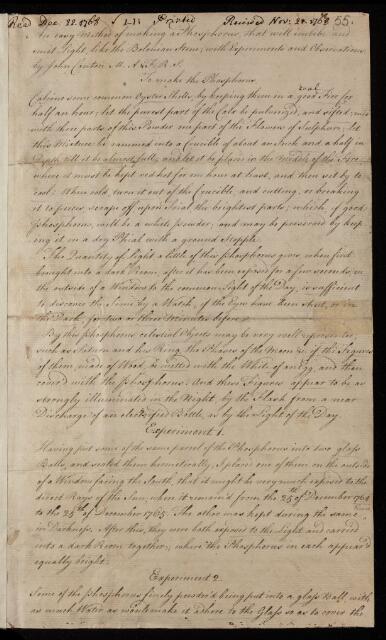 Read Dec. 22. 1768 L. I. Printed Received Nov: 24. 1768 55.
An easy Method of making a Phosphorus, that will imbibe and
emit Light, like the Bolonian Stone; with Experiments and Observations
by John Canton M.A. & F.R.S.
To make the Phosphorus.
Calcine some common Oyster Shells, by keeping them in a good coal Fire for
half an hour; let the purest part of the Calx be pulverized, and sifted; mix
with three parts of this Powder one part of the Flowers of Sulphur; let
this Mixture be rammed into a Crucible of about an Inch and a half in
Depth, till it be almost full; and let it be placed in the Middle of the Fire,
where it must be kept red hot for one hour at least, and then set by to
cool: When cold, turn it out of the Crucible, and cutting, or breaking
it to pieces, scrape off upon Trial the brightest parts; which, if good
Phosphorus, will be a white powder; and may be preserved by keep-
ing it in a dry Phial with a ground Stopple.
The Quantity of Light a little of this Phosphorus gives when first
brought into a dark Room, after it has been exposed for a few seconds, on
the outside of a Window, to the common Light of the Day, is sufficient
to discover the Time by a Watch, if the Eyes have been shut, or in
the Dark, for two or three Minutes before.
By this Phosphorus celestial Objects may be very well represented;
such as Saturn and his Ring, the Phases of the Moon &c. if the Figures
of them, made of Wood, be wetted with the White of an egg, and then
cover'd with the Phosphorus. And these Figures appear to be as
strongly illuminated in the Night, by the Flash from a near
Discharge of an electrified Bottle, as by the Light of the Day.
Experiment 1.
Having put some of the same parcel of the Phosphorus into two glass
Balls, and sealed them hermetically, I placed one of them on the outside
of a Window facing the South, that it might be very much exposed to the
direct Rays of the Sun; when it remain'd from the 25th of December 1764
to the 25th of December 1765. The other was kept during the same
in Darkness. After this, they were both exposed to the Light and carried
into a dark Room together; where the Phosphorus in each appear'd
equally bright.
Experiment 2.
Some of the Phosphorus finely powder'd being put into a glass Ball, with
as much Water as would make it adhere to the Glass so as to cover the